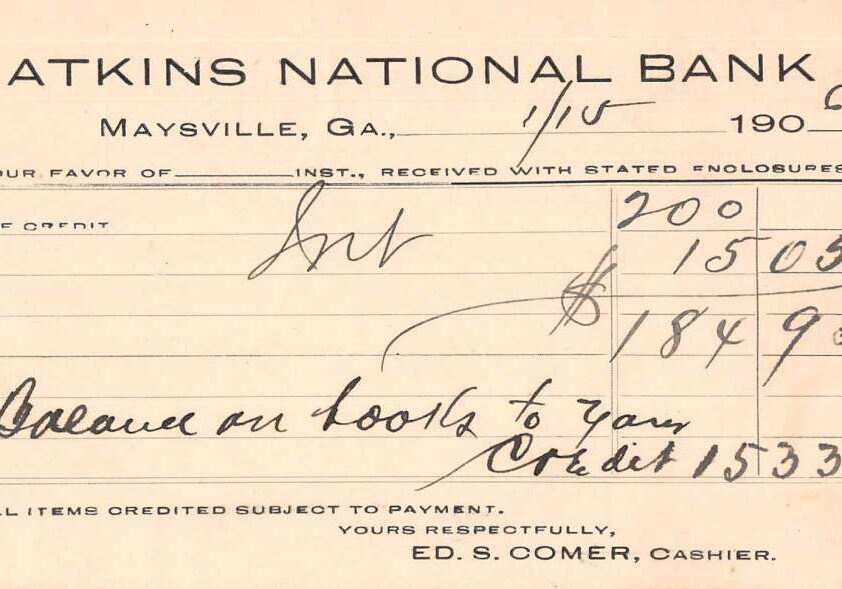 ATKINS NATIONAL BANK
MAYSVILLE, GA., 1/15 190 6
OUR FAVOR OF INST., RECEIVED WITH STATED ENCLOSURES
F CREDIT 200
Int 15 05
$ 184 9
Balance on books to your
Credit 15 33
LL ITEMS CREDITED SUBJECT TO PAYMENT.
YOURS RESPECTFULLY,
ED. S. COMER, CASHIER.